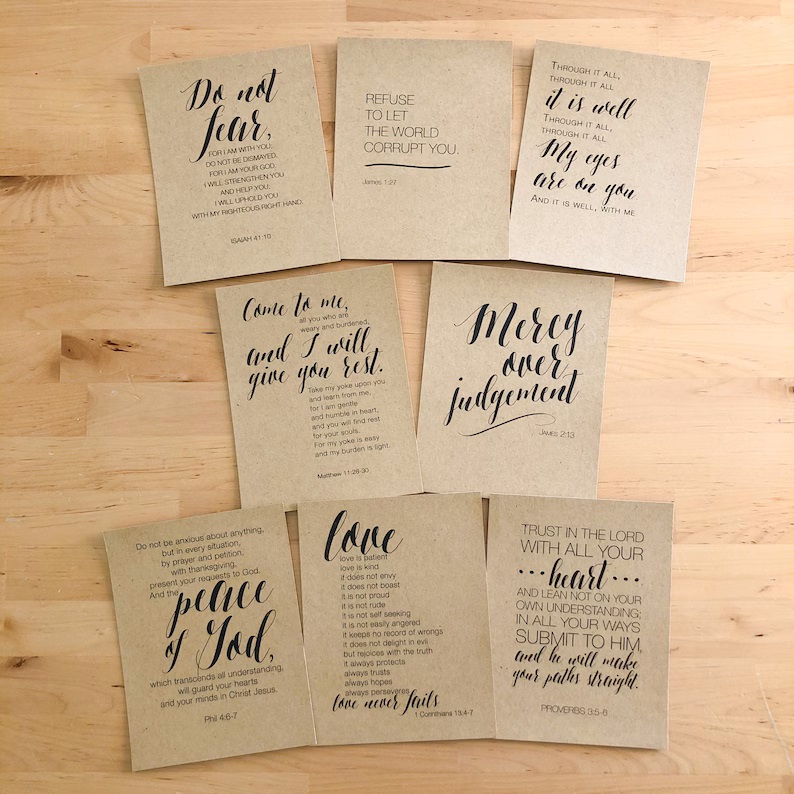 Do not
fear,
FOR I AM WITH YOU;
DO NOT BE DISMAYED,
FOR I AM YOUR GOD.
I WILL STRENGTHEN YOU
AND HELP YOU;
I WILL UPHOLD YOU
WITH MY RIGHTEOUS RIGHT HAND.
ISAIAH 41:10
REFUSE
TO LET
THE WORLD
CORRUPT YOU.
James 1:27
THROUGH IT ALL,
THROUGH IT ALL
it is well
THROUGH IT ALL,
THROUGH IT ALL
My eyes
are on you
AND IT IS WELL, WITH ME
Come to me,
all you who are
weary and burdened,
and I will
give you rest.
Take my yoke upon you
and learn from me,
for I am gentle
and humble in heart,
and you will find rest
for your souls.
For my yoke is easy
and my burden is light.
Matthew 11:28-30
Mercy
over
judgement
JAMES 2:13
Do not be anxious about anything,
but in every situation,
by prayer and petition,
with thanksgiving,
present your requests to God.
And the
peace
of God,
which transcends all understanding,
will guard your hearts
and your minds in Christ Jesus.
Phil 4:6-7
love
love is patient
love is kind
it does not envy
it does not boast
it is not proud
it is not rude
it is not self seeking
it is not easily angered
it keeps no record of wrongs
it does not delight in evil
but rejoices with the truth
it always protects
always trusts
always hopes
always perseveres
love never fails
1 Corinthians 13:4-7
TRUST IN THE LORD
WITH ALL YOUR
•••heart•••
AND LEAN NOT ON YOUR
OWN UNDERSTANDING;
IN ALL YOUR WAYS
SUBMIT TO HIM,
and he will make
your paths straight.
PROVERBS 3:5-6